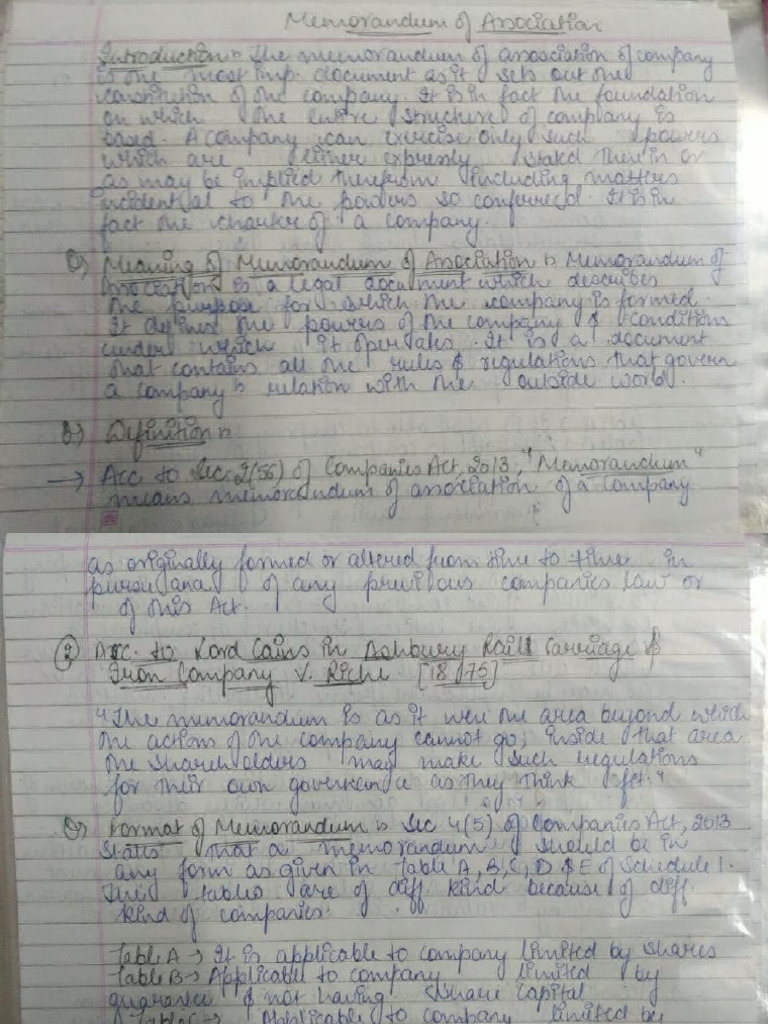 Memorandum of Association
Introduction :- The memorandum of association of company
is the most imp. document as it sets out the
constitution of the company. It is in fact the foundation
on which the entire structure of company is
based. A company can exercise only such powers
which are either expressly stated therein or
as may be implied therefrom including matters
incidental to the powers so conferred. It is in
fact the charter of a company.
a) Meaning of Memorandum of Association :- Memorandum of
Association is a legal document which describes
the purpose for which the company is formed.
It defines the powers of the company & conditions
under which it operates. It is a document
that contains all the rules & regulations that govern
a company's relation with the outside world.
b) Definition :-
→ Acc to Sec 2(56) of Companies Act, 2013, "Memorandum"
means memorandum of association of a company
as originally formed or altered from time to time in
pursuance of any previous companies law or
of this Act.
② Acc. to Lord Cains in Ashbury Rail Carriage &
Iron Company V. Riche. [1875]
"The memorandum is as it were the area beyond which
the actions of the company cannot go; inside that area
the shareholders may make such regulations
for their own governance as they think fit."
Format of Memorandum :- Sec 4(5) of Companies Act, 2013
States that a memorandum should be in
any form as given in Table A, B, C, D & E of Schedule 1.
tables are of diff kind because of diff.
kind of companies.
Table A → It is applicable to company limited by shares
Table B → Applicable to company limited by
guarantee & not having share capital
Table C → Applicable to company limited by